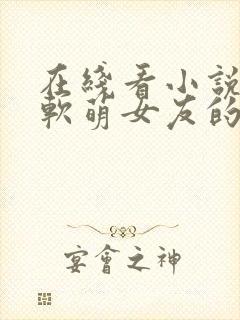 在綫看小說
軟萌女友的
宴會之神